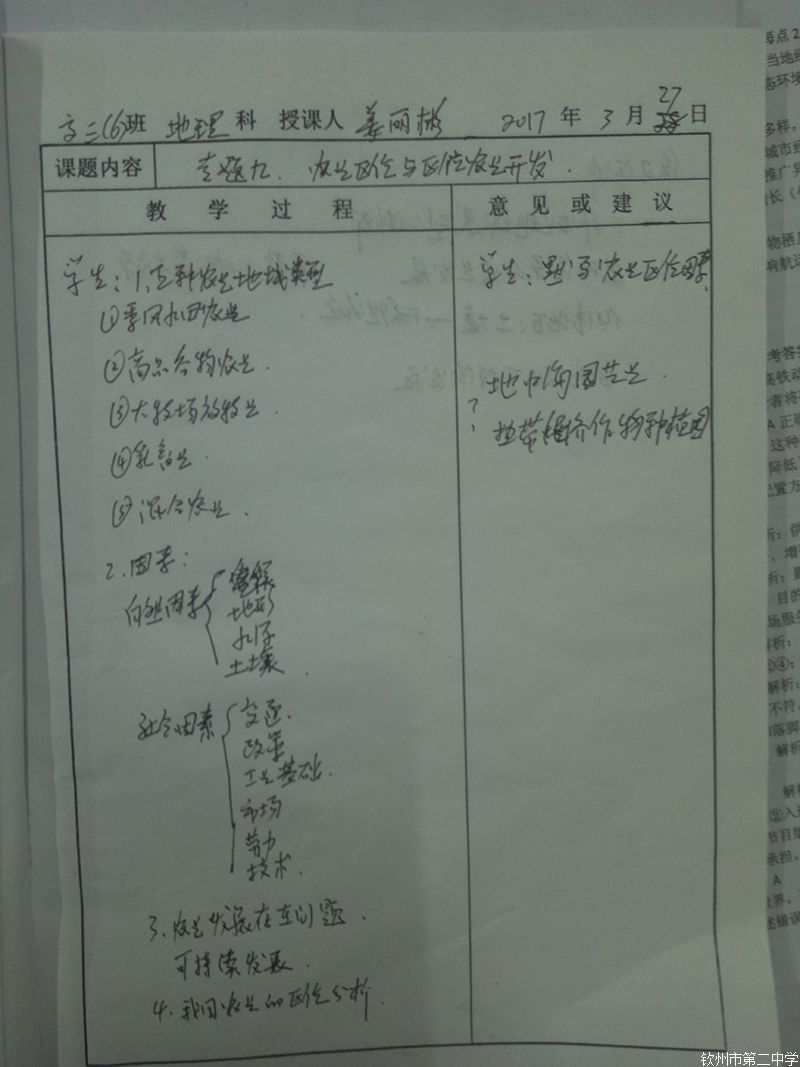 高三(6)班 地理科 授课人 姜丽彬 2017年3月27日
课题内容 专题九. 农业区位与区位农业开发.
教学过程 意见或建议
学生: 1.五种农业地域类型
①季风水田农业
②商品谷物农业.
③大牧场放牧业.
④乳畜业.
⑤混合农业.
2.因素:
自然因素
地形
水源
土壤.
社会因素 交通.
政策
工业基础.
市场
劳力
技术.
3.农业发展存在问题.
可持续发展.
4.我国农业的区位分析.
学生: 默写农业区位因素.
地中海园艺业.
?
热带经济作物种植园
钦州市第二中学